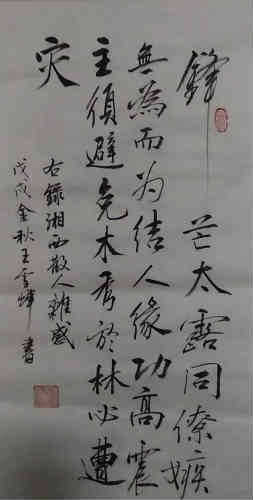 鋒芒太露同僚嫉
無為而为结人緣功高震
主須避免木秀於林必遭
灾
右錄湘西散人雜感
戊戌金秋王雪峰書